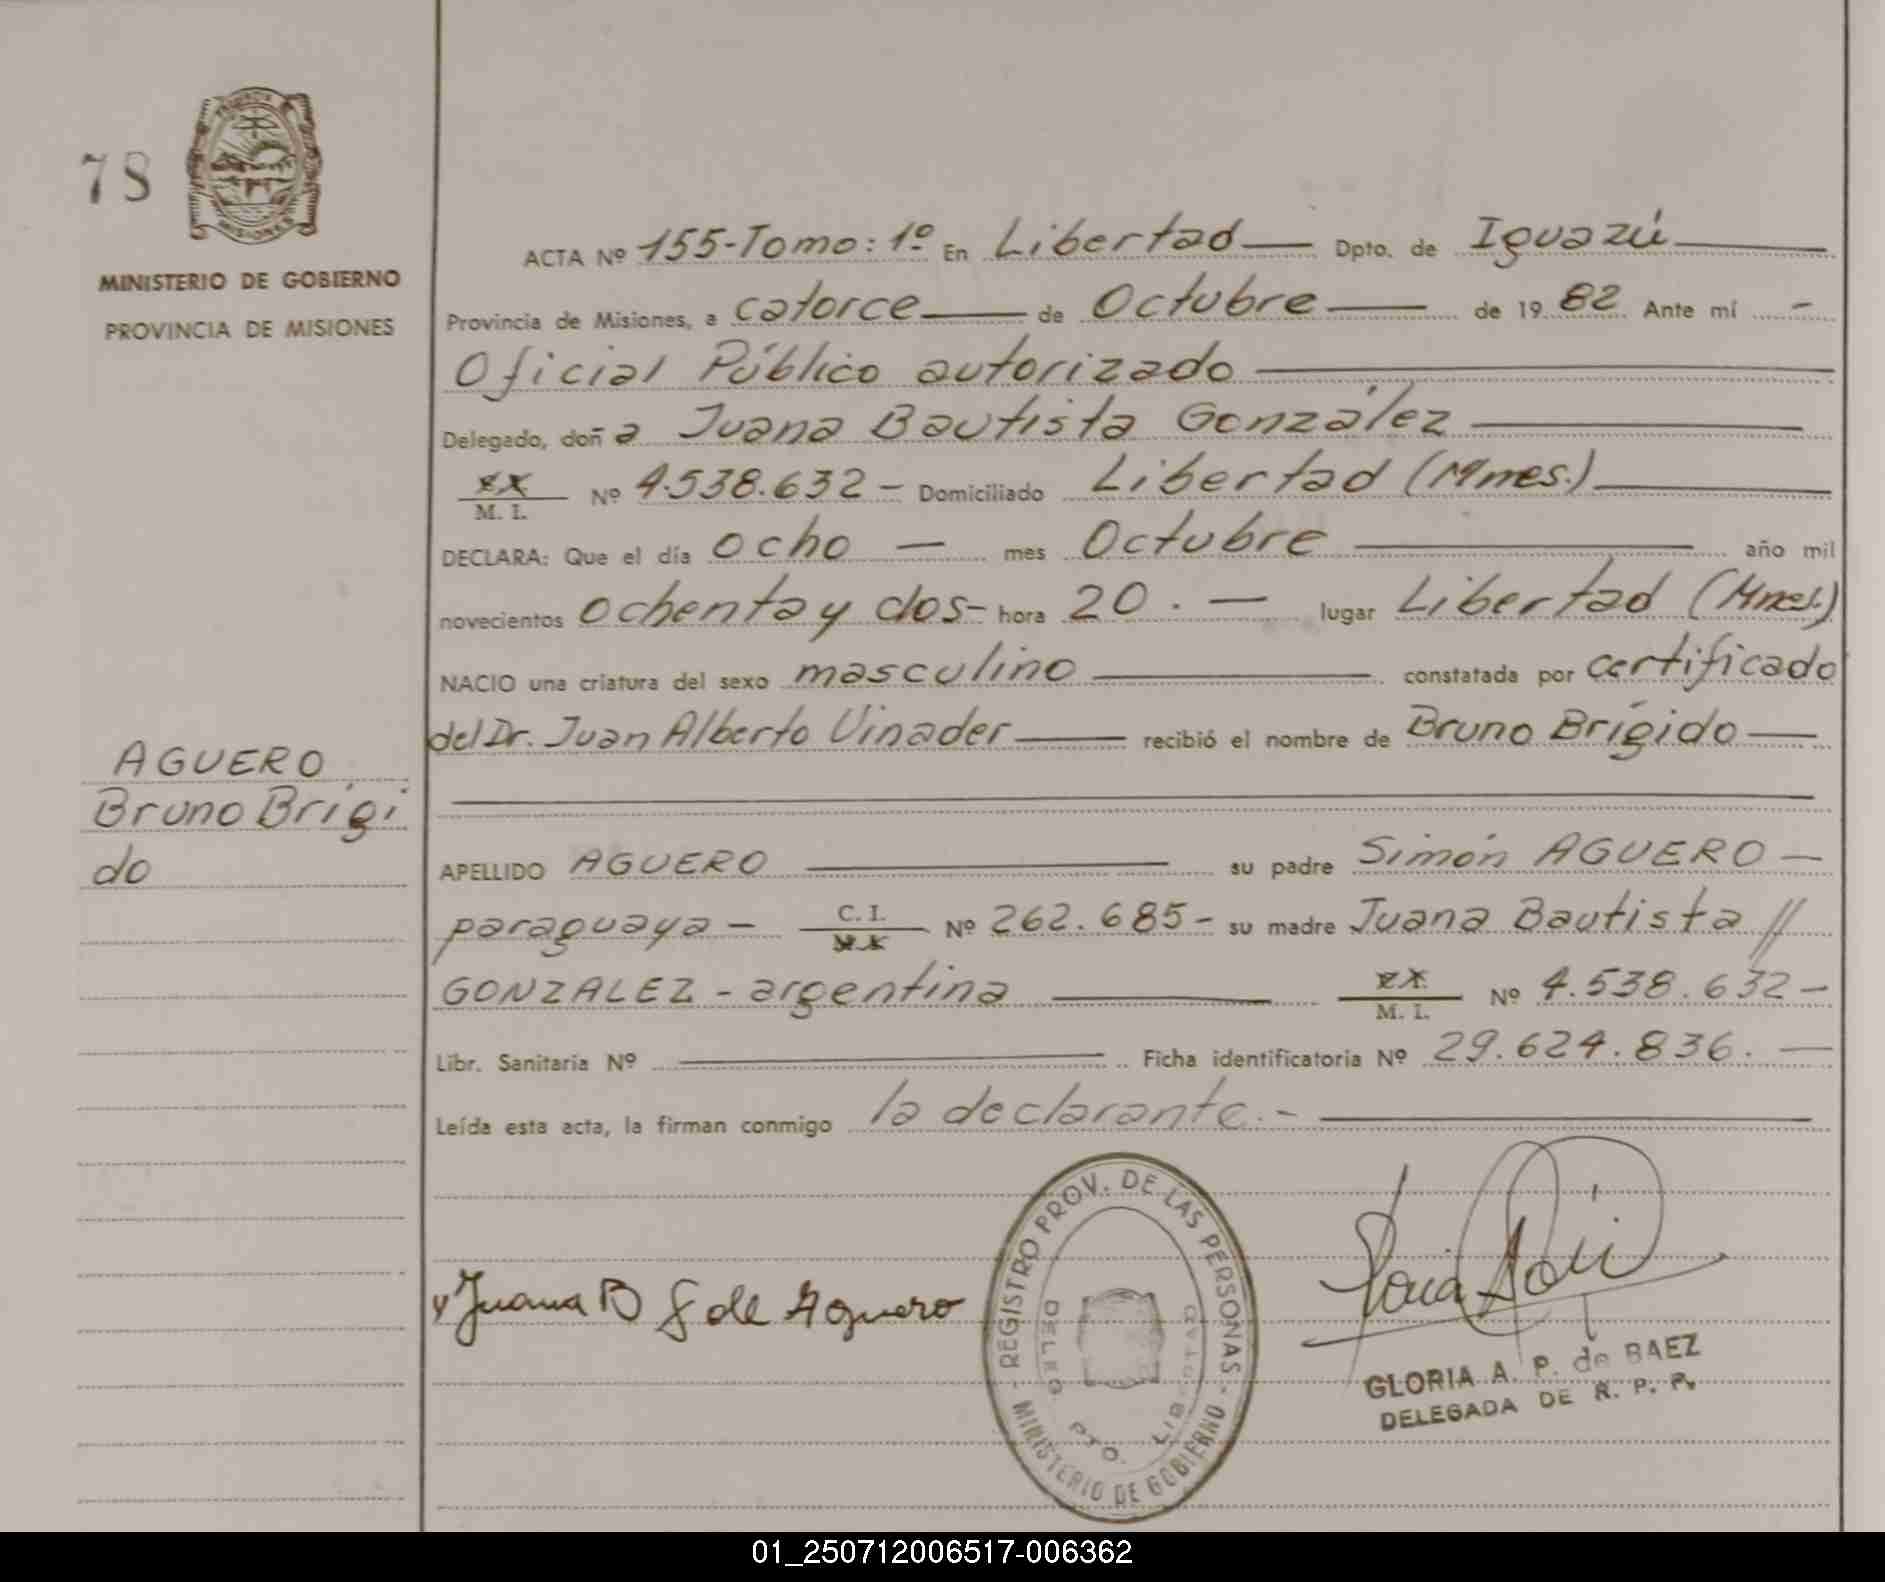 78
PROVINCIA
MISIONES
MINISTERIO DE GOBIERNO
PROVINCIA DE MISIONES
AGUERO
Bruno Brígi
do
ACTA Nº 155-Tomo: 1º En Libertad Dpto. de Iguazú
Provincia de Misiones, a catorce de Octubre de 1982 Ante mí -
Oficial Público autorizado
Delegado, doña Juana Bautista González
M. I. Nº 4.538.632 - Domiciliado Libertad (Mnes.)
DECLARA: Que el día ocho - mes Octubre año mil
novecientos ochenta y dos - hora 20. - lugar Libertad (Mnes.)
NACIO una criatura del sexo masculino constatada por certificado
del Dr. Juan Alberto Vinader recibió el nombre de Bruno Brígido
APELLIDO AGUERO su padre Simón AGUERO -
paraguaya - C. I. Nº 262.685 - su madre Juana Bautista //
GONZALEZ - argentina M. I. Nº 4.538.632 -
Libr. Sanitaria Nº Ficha identificatoria Nº 29.624.836. -
Leída esta acta, la firman conmigo la declarante. -
Juana B G de Aguero
- REGISTRO PROV. DE LAS PERSONAS -
MINISTERIO DE GOBIERNO
DELEG. PTO. LIBERTAD
GLORIA A. P. de BAEZ
DELEGADA DE R. P. P.
01_250712006517-006362